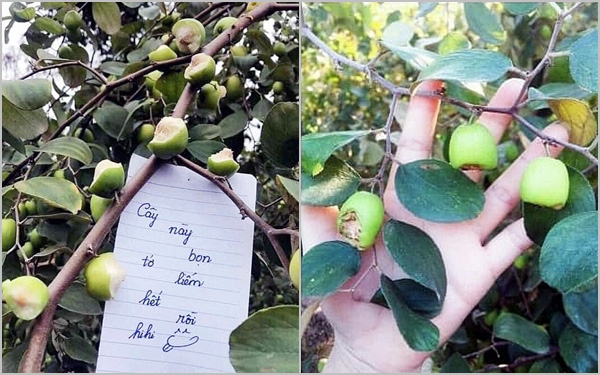 Cây này
bọn
tớ liếm
hết
rồi
hihi